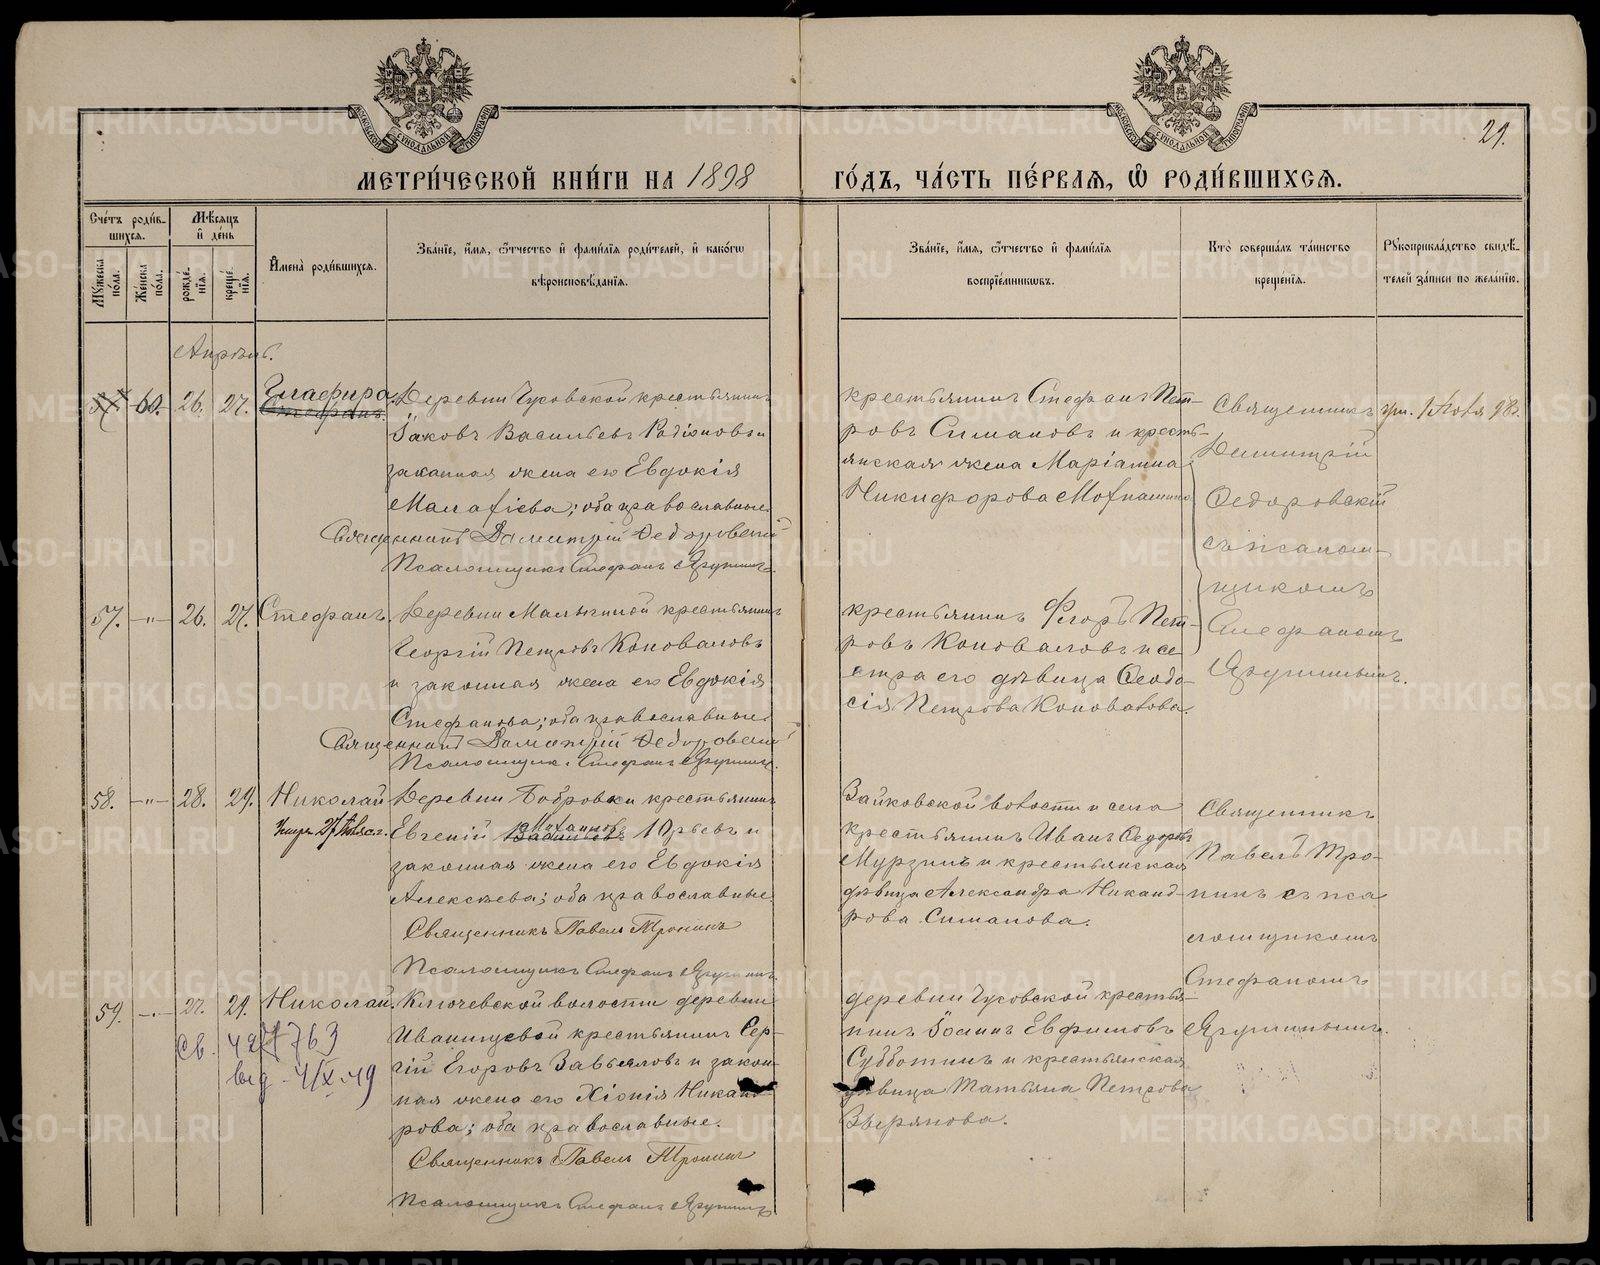 МЕТРИ́ЧЕСКОЙ КНИ́ГИ НА 1898 ГО́ДЪ, ЧА́СТЬ ПЕ́РВАЯ, Ѡ РОДИ́ВШИХСЯ.
29.
Сче́тъ роди́в-
шихся.
Му́жеска по́ла.
Же́нска по́ла.
Мѣ́сяцъ и де́нь
рожде́-
нїя.
креще́-
нїя.
И҆мена̀ роди́вшихся.
Зва́нїе, и҆́мя, ѻ҆́тчество и҆ фами́лїя роди́телей, и҆ како́гѡ
вѣроисповѣ́данїя.
Зва́нїе, и҆́мя, ѻ҆́тчество и҆ фами́лїя
воспрїе́мникѡвъ.
Кто̀ соверша́лъ та́инство
креще́нїя.
Рꙋкоприкла́дство свидѣ́-
телей за́писи по жела́нїю.
Апрѣль.
60. 26. 27. Глафира
Стефанъ
Деревни Чусовской крестьянинъ
Іаковъ Васильевъ Родіоновъ и
законная жена его Евдокія
Малафіева; оба православные.
Священникъ Димитрій Ѳедоровскій
Псаломщикъ Стефанъ Ярушинъ
крестьянинъ Стефанъ Пет-
ровъ Симановъ и кресть-
янская жена Маріанна
Никифорова
Священникъ
Димитрій
Ѳедоровскій
съ псалом-
щикомъ
Стефаномъ
Ярушинымъ.
98
57. -"- 26. 27. Стефанъ.
Деревни Малыгиной крестьянинъ
Георгій Петровъ Коноваловъ
и законная жена его Евдокія
Стефанова; оба православные.
Священникъ Димитрій Ѳедоровскій
Псаломщикъ Стефанъ Ярушинъ.
крестьянинъ Ѳегоръ Пет-
ровъ Коноваловъ и се-
стра его дѣвица Ѳеодо-
сія Петрова Коновалова.
58. -"- 28. 29. Николай
Деревни Бобровки крестьянинъ
Михаиловъ
Евгеній Васильевъ Юрьевъ и
законная жена его Евдокія
Алексѣева; оба православные.
Священникъ Павелъ Тронинъ
Псаломщикъ Стефанъ Ярушинъ.
Зайковской волости и села
крестьянинъ Иванъ Ѳедоровъ
Мурзинъ и крестьянская
дѣвица Александра Никанд-
рова Симанова.
Священникъ
Павелъ Тро-
нинъ съ пса
ломщикомъ
Стефаномъ
Ярушинымъ.
59. -"- 27. 29. Николай.
Ключевской волости деревни
Иванищевой крестьянинъ Сер-
гій Егоровъ Завьяловъ и закон-
ная жена его Хіонія Никанд-
рова; оба православные.
Священникъ Павелъ Тронинъ
Псаломщикъ Стефанъ Ярушинъ
деревни Чусовской крестья-
нинъ Іоаннъ Евфимовъ
Субботинъ и крестьянская
дѣвица Татьяна Петрова
Звѣрянова.
METRIKI.GASO-URAL.RU